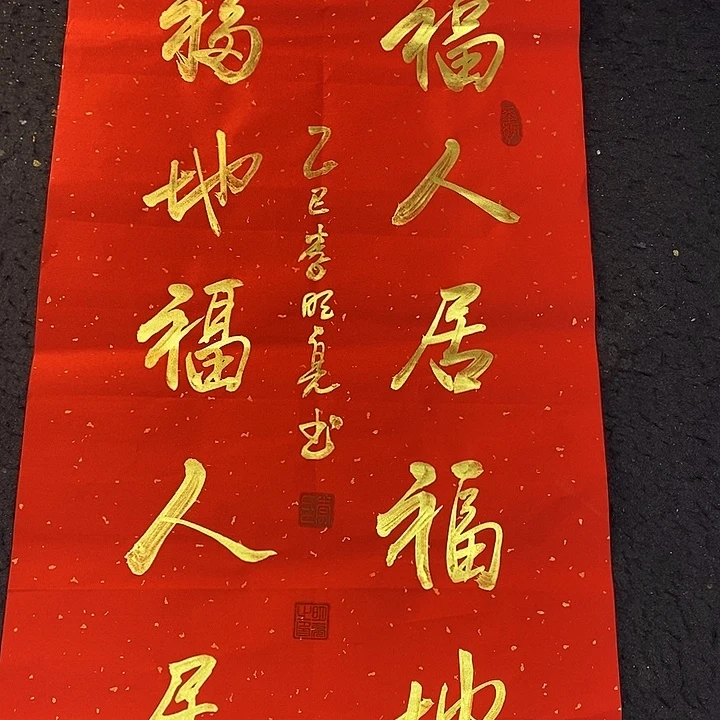 福人居福地
福地福人居
乙巳 亮书